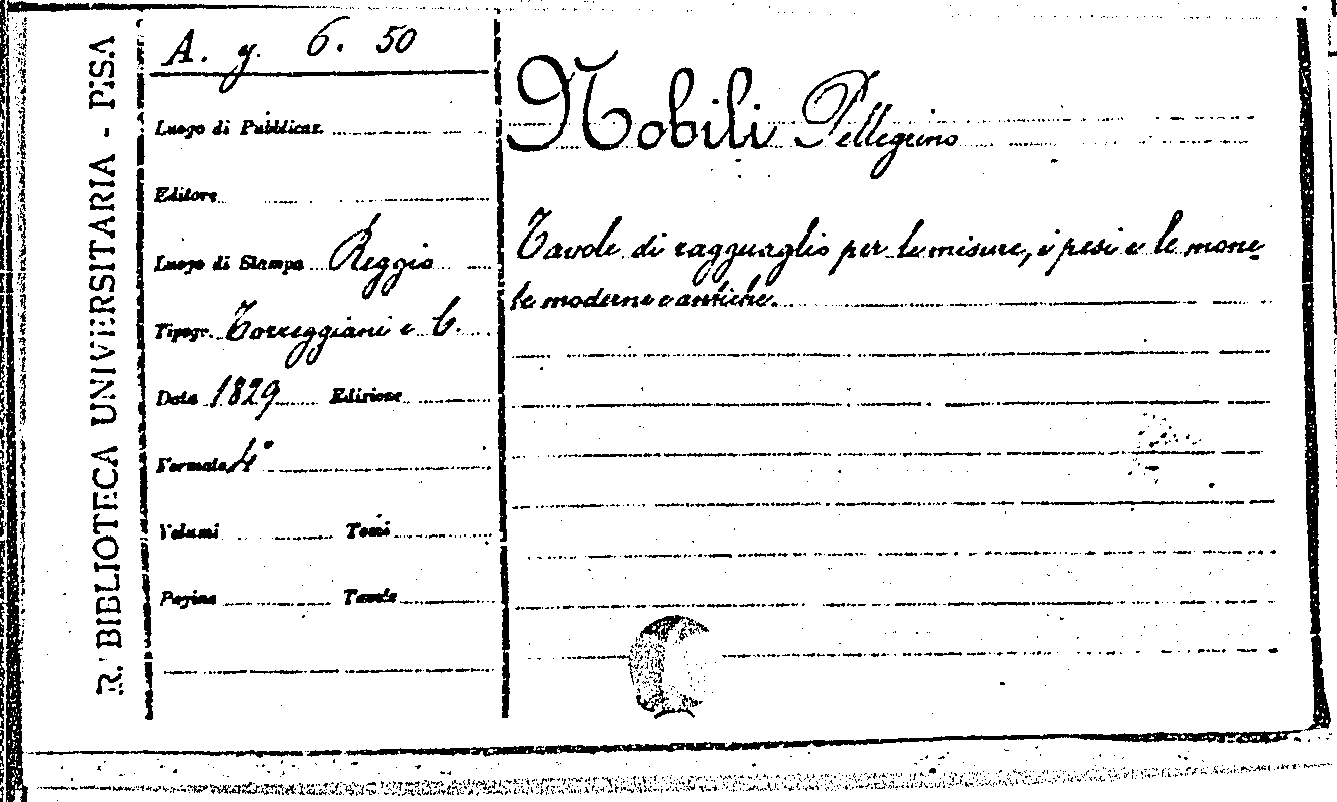 R. BIBLIOTECA UNIVERSITARIA - PISA
A. y. 6. 50
Luogo di Pubblicaz.
Editore
Luogo di Stampa Reggio
Tipogr. Torreggiani e C.
Data 1829 Edizione
Formato 4°
Volumi Tomi
Pagine Tavole
Nobili Pellegrino
Tavole di ragguaglio per le misure, i pesi e le mone-
te moderne e antiche.